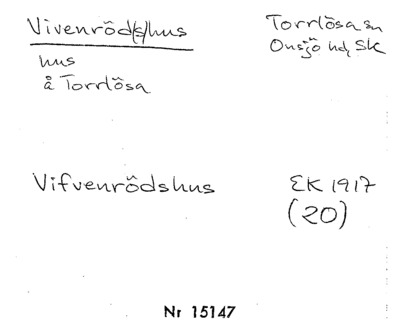 Vivenröd(s)hus
Torrlösa sn
Onsjö hd, Sk
hus
å Torrlösa
Vifvenrödshus
EK 1917
(20)
Nr 15147